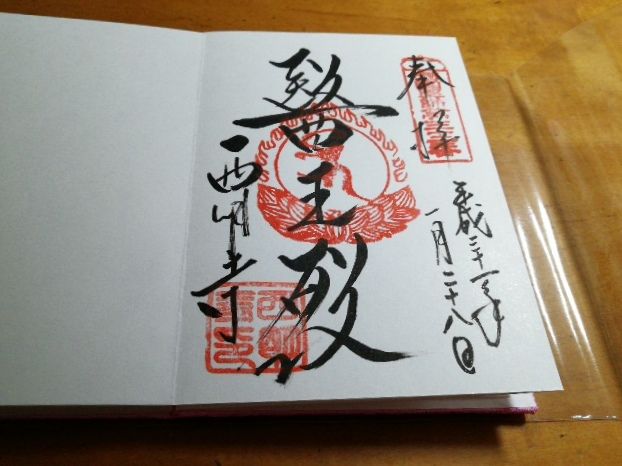 奉拝
平成三十一年
一月二十八日
醫王殿
西明寺